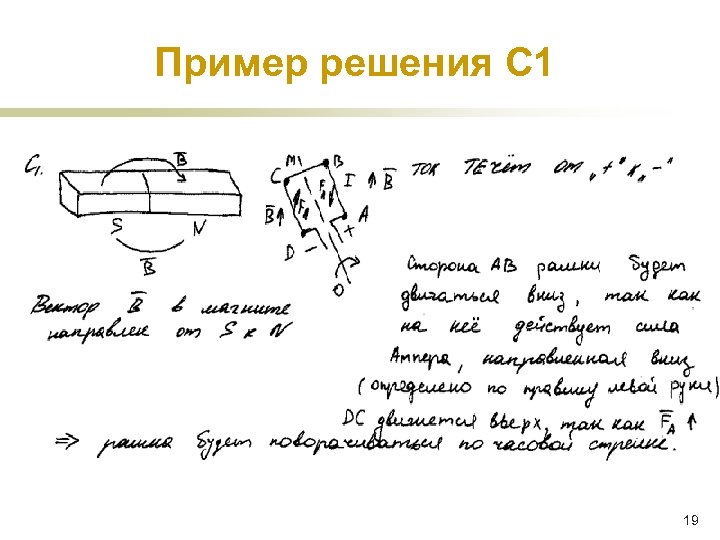 Пример решения С1
C1.
B
S N
B
C M1 B
F_A I ↑ B
B ↑ F_A A
D − +
O
ток течёт от „+" к „−"
Вектор B в магните
направлен от S к N
Сторона AB рамки будет
двигаться вниз, так как
на неё действует сила
Ампера, направленная вниз
(определено по правилу левой руки)
DC движется вверх, так как F_A ↑
⇒ рамка будет поворачиваться по часовой стрелке.
19